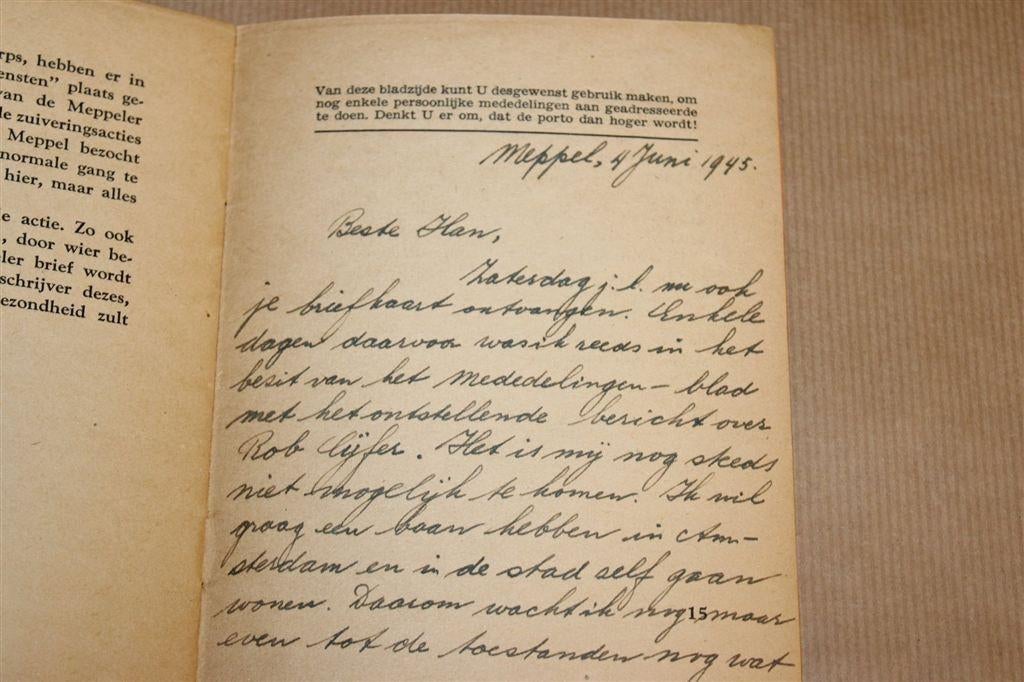 rps, hebben er in
ensten” plaats ge-
van de Meppeler
le zuiveringsacties
Meppel bezocht
normale gang te
hier, maar alles
e actie. Zo ook
, door wier be-
ler brief wordt
schrijver dezes,
ezondheid zult
Van deze bladzijde kunt U desgewenst gebruik maken, om
nog enkele persoonlijke mededelingen aan geadresseerde
te doen. Denkt U er om, dat de porto dan hoger wordt!
Meppel, 4 Juni 1945.
Beste Han,
Zaterdag j.l. nu ook
je briefkaart ontvangen. Enkele
dagen daarvoor was ik reeds in het
bezit van het Mededelingen-blad
met het ontstellende bericht over
Rob Cijfer. Het is mij nog steeds
niet mogelijk te komen. Ik wil
graag een baan hebben in Am-
sterdam en in de stad self gaan
wonen. Daarom wacht ik nog 15 maar
even tot de toestanden nog wat